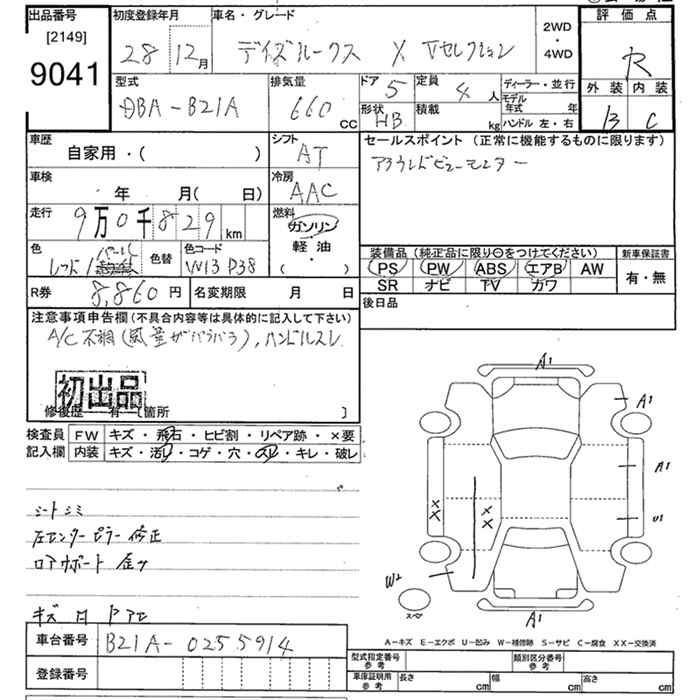 出品番号
[2149]
9041
初度登録年月
28 12月
車名・グレード
デイズルークス X Vセレクション
2WD
・
4WD
評価点
R
外装 内装
B C
型式
DBA-B21A
排気量
660 cc
ドア 5
定員 4 人
形状 HB
積載 kg
ディーラー・並行
モデル年式 年
ハンドル 左・右
車歴
自家用・( )
シフト
AT
車検
年 月( 日)
冷房
AAC
走行
9万0千829km
燃料
ガソリン
軽油
( ・ )
色
レッド
色替
色コード
W13 P38
R券 8,860円
名変期限 月 日
セールスポイント (正常に機能するものに限ります)
アラウンドビューモニター
装備品 (純正品に限り○をつけてください)
PS PW ABS エアB AW
SR ナビ TV カワ
新車保証書
有・無
後日品
注意事項申告欄(不具合内容等は具体的に記入して下さい)
A/C不調(風量がバラバラ), ハンドルスレ
初出品
修復歴 有 [箇所 ]
検査員記入欄
FW キズ・飛石・ヒビ割・リペア跡・×要
内装 キズ・汚レ・コゲ・穴・スレ・キレ・破レ
シートシミ
左センターピラー修正
キズ 凹
車台番号 B21A-0255914
登録番号
A1
A1
A1
U1
XX
XX
W2
スペア
A1
A-キズ E-エクボ U-凹み W-補修跡 S-サビ C-腐食 XX-交換済
型式指定番号 参考
類別区分番号 参考
車庫証明用 参考
長さ cm
幅 cm
高さ cm